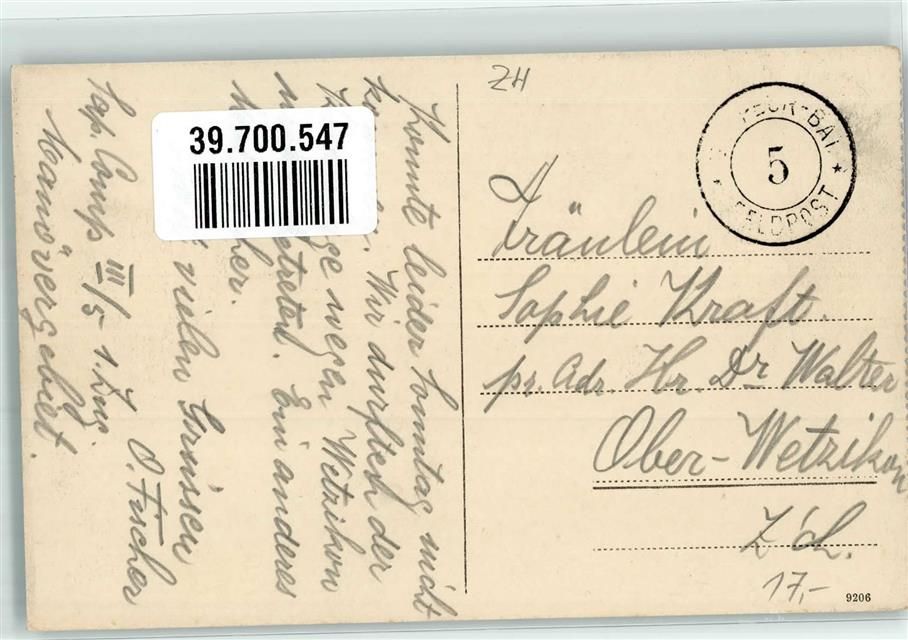 39.700.547
Konnte leider Sonntag nicht
Wir durften der
wegen Wetzikon
Ein anderes
vielen Grüssen
O. Fischer
Sap. Comp. III/5 1. Zug
Manövergebiet.
ZH
BAT.
5
FELDPOST
Fräulein
Sophie Kraft.
pr. Adr. Hr. Dr. Walter
Ober-Wetzikon
Z'ch.
17,-
9206